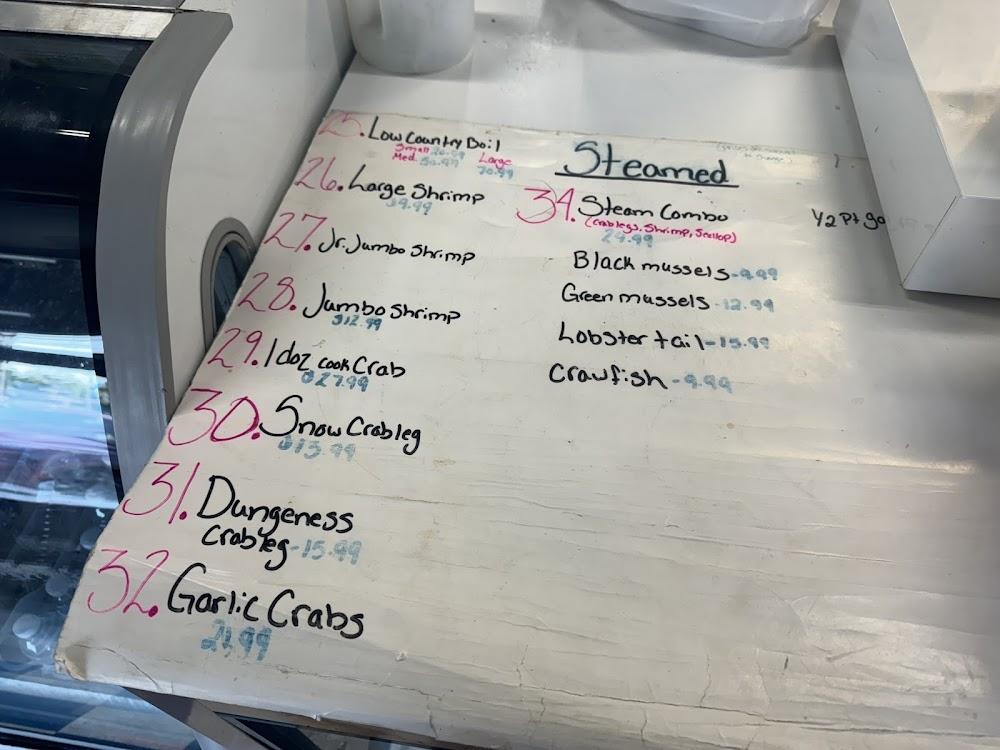 25. Low Country Boil
Small
Med. Large
70.99
26. Large Shrimp
$9.99
27. Jr. Jumbo Shrimp
28. Jumbo Shrimp
$12.99
29. 1 doz cook Crab
$27.99
30. Snow Crableg
$13.99
31. Dungeness
Crableg-15.99
32. Garlic Crabs
Steamed
34. Steam Combo
(Crablegs, Shrimp, Scallop)
24.99
Black mussels-9.99
Green mussels-12.99
Lobster tail-15.99
Crawfish-9.99
1/2 Pt go